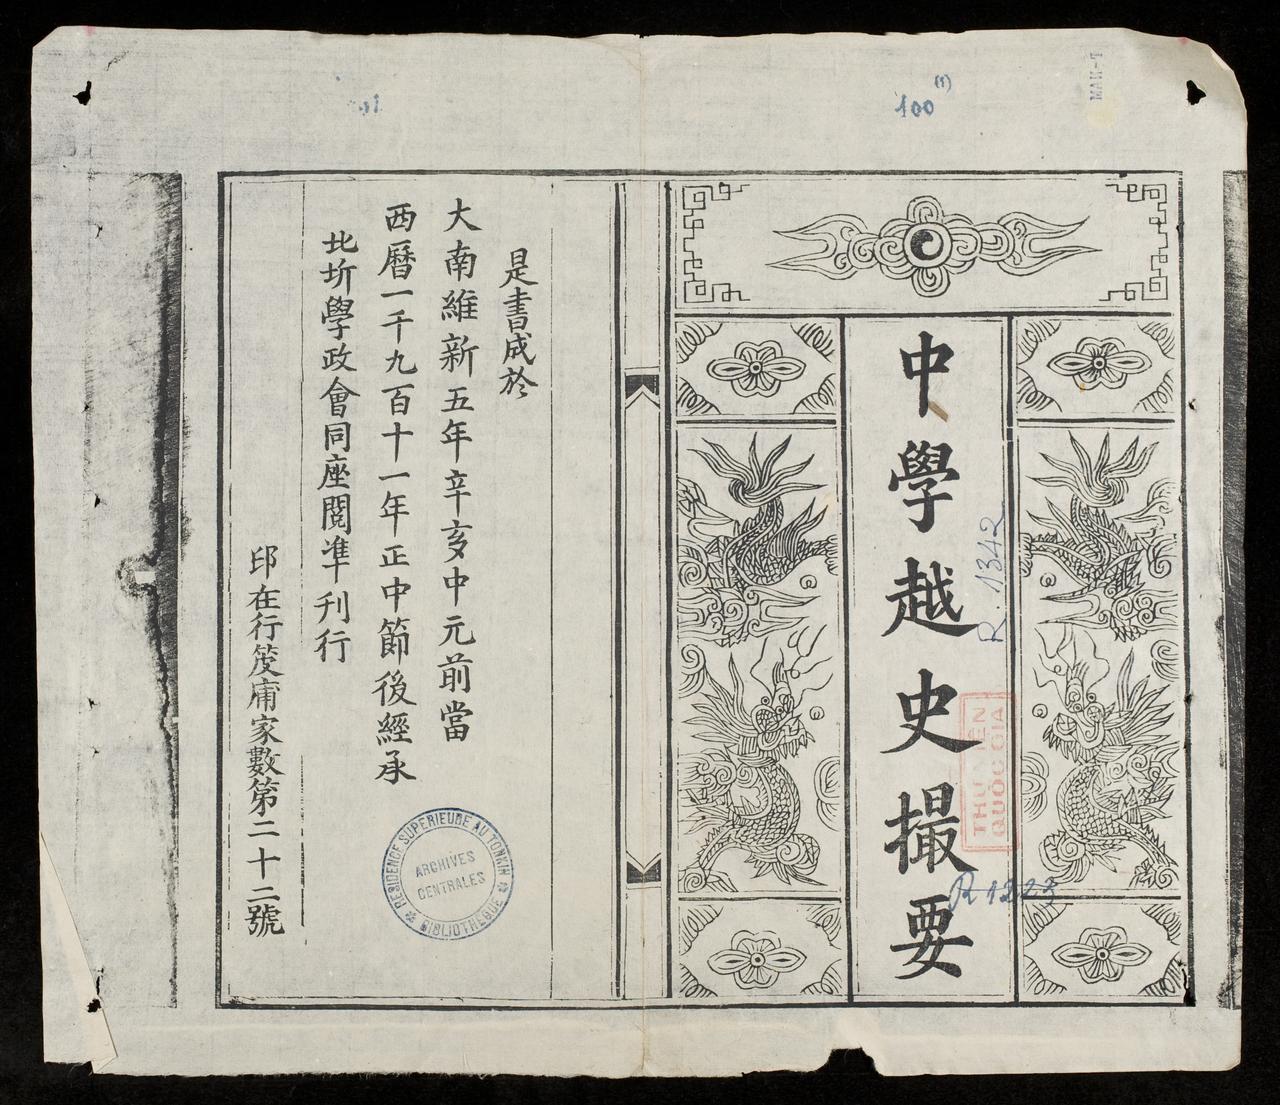 中學越史撮要
是書成於
大南維新五年辛亥中元前當
西曆一千九百十一年正中節後經承
北圻學政會同座閱准刊行
印在行笈庸家數第二十二號
100
(1)
R.1342
THƯ VIỆN
QUỐC GIA
R 1223
RÉSIDENCE SUPÉRIEURE AU TONKIN
ARCHIVES
CENTRALES
BIBLIOTHÈQUE